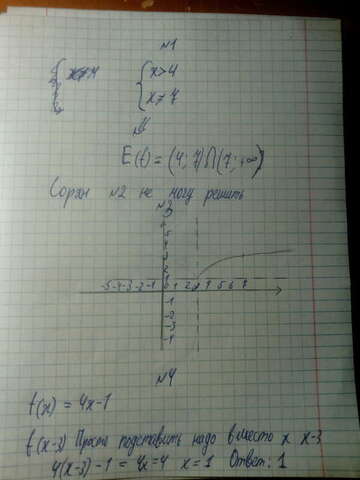 №1
x>4
x≠7
E(f) = (4; 7)∩(7; +∞)
Сорян №2 не могу решить
№3
5
4
3
2
1
-5 -4 -3 -2 -1 0 1 2 3 4 5 6 7
-1
-2
-3
-4
№4
f(x) = 4x-1
f(x-3) Просто подставить надо вместо x x-3
4(x-3)-1 = 4x=4 x=1 Ответ: 1